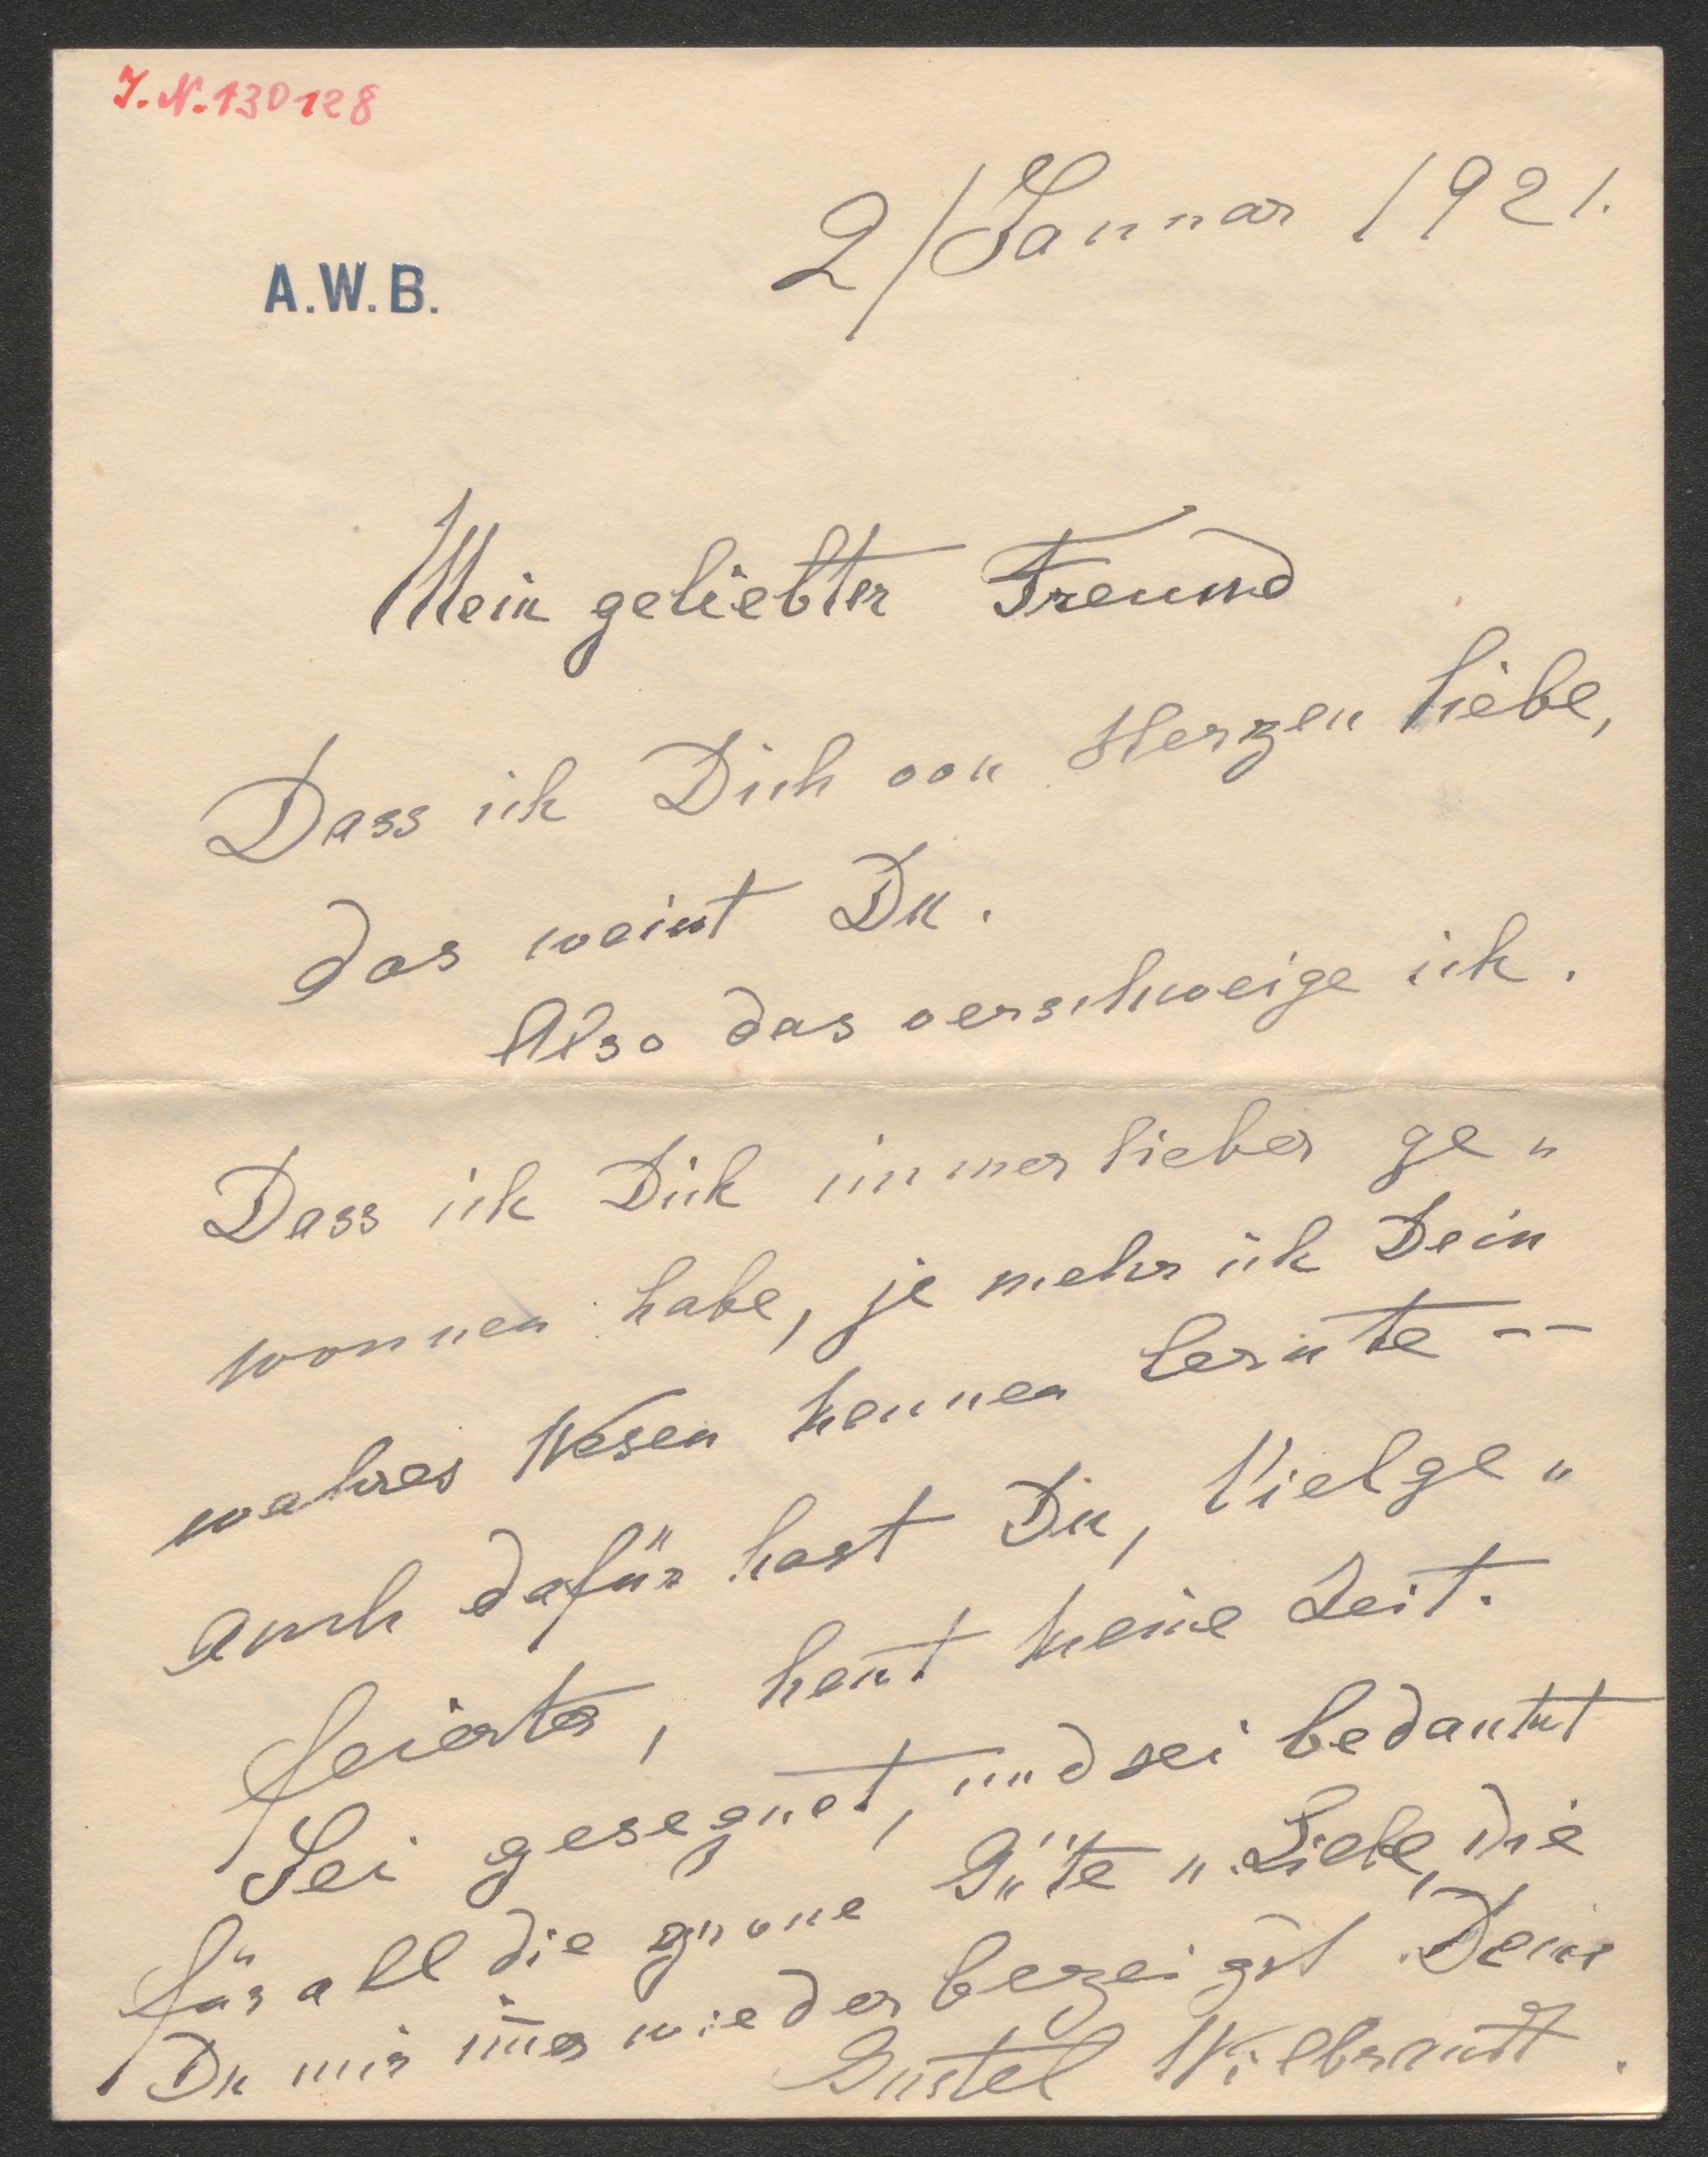 I. N. 130128
2/Januar 1921.
A.W.B.
Mein geliebter Freund
Dass ich Dich von Herzen liebe,
das weisst Du.
Also das verschweige ich.
Dass ich Dich immer lieber ge„
wonnen habe, je mehr ich Dein
wahres Wesen kennen lernte --
auch dafür hast Du, Vielge„
feierter, heut keine Zeit.
Sei gesegnet, und sei bedankt
für all die grosse Güte u. Liebe, die
Du mir im̄er wieder bezeigst. Deine
Gustel Wilbrandt.